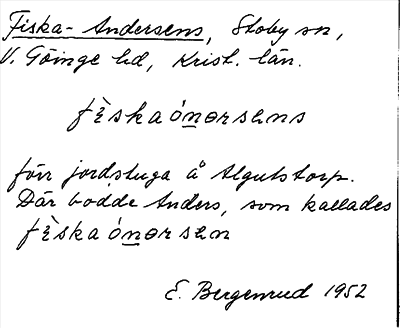 Fiska-Andersens, Stoby sn,
V. Göinge hd, Krist. län.
fı̀skaónərsens
förr jordstuga å Algutstorp.
Där bodde Anders, som kallades
fı̀skaónərsen
E. Bergenrud 1952